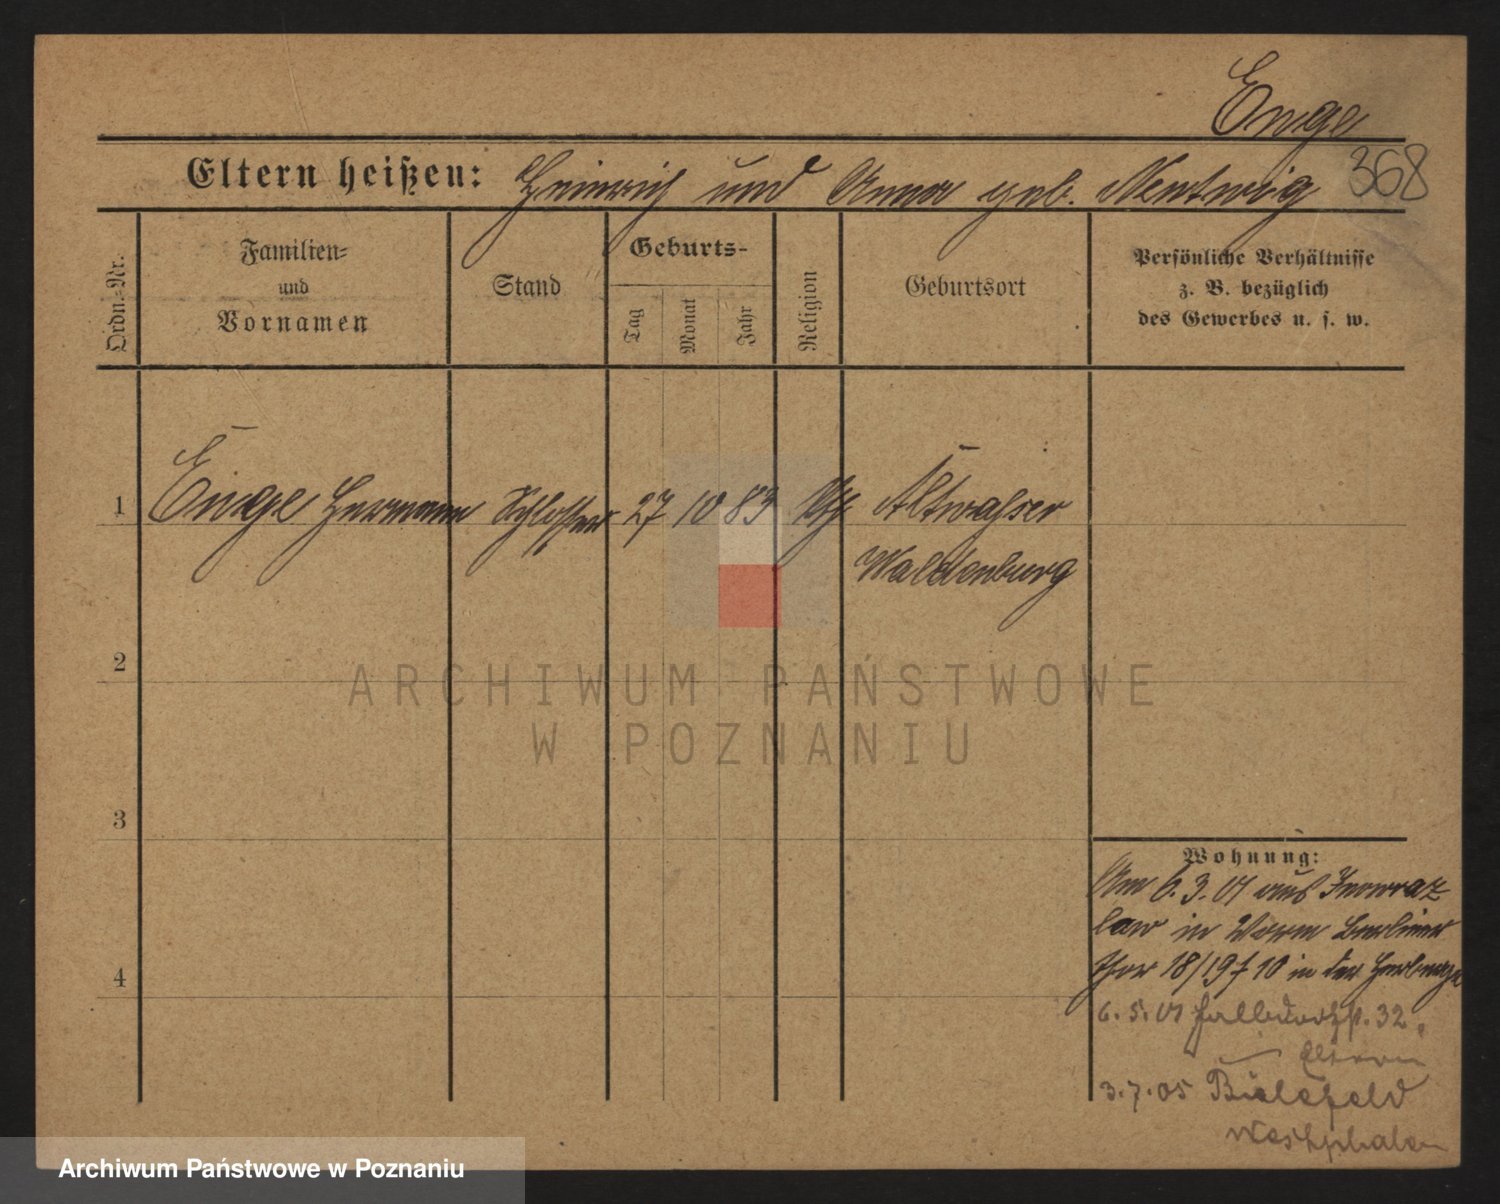 Enge
368
Eltern heißen: Heinrich und Anna geb. Nentwig
Ordn.-Nr.
Familien-
und
Vornamen
Stand
Geburts-
Tag
Monat
Jahr
Religion
Geburtsort
Persönliche Verhältnisse
z. B. bezüglich
des Gewerbes u. s. w.
1 Enge Hermann Schlosser 27 10 83 Altwasser
Waldenburg
2
3
4
Wohnung:
Am 6.3.01 aus Inowraz
law in Berliner
Thor 18/19 10 in der Herberge
6.5.01 32
Eltern
3.7.05 Bielefeld
Westphalen
ARCHIWUM PAŃSTWOWE
W POZNANIU
Archiwum Państwowe w Poznaniu